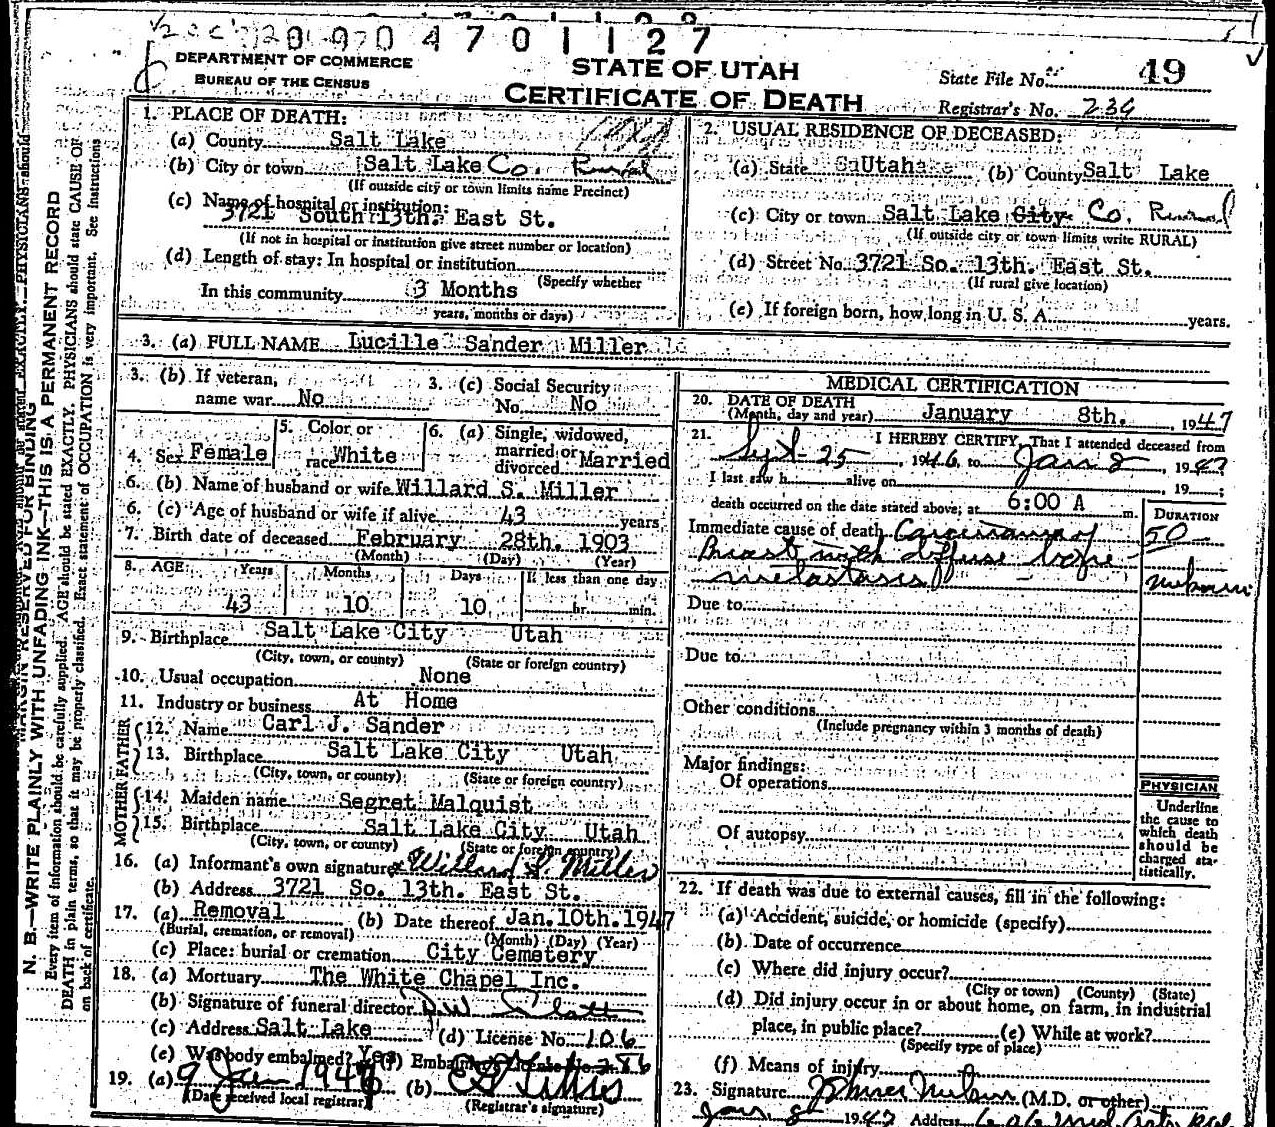 20 90 4701127
DEPARTMENT OF COMMERCE
BUREAU OF THE CENSUS
STATE OF UTAH
CERTIFICATE OF DEATH
State File No. 49
Registrar's No. 234
1. PLACE OF DEATH:
(a) County Salt Lake
(b) City or town Salt Lake Co. Rural
(If outside city or town limits name Precinct)
(c) Name of hospital or institution:
3721 South 13th. East St.
(If not in hospital or institution give street number or location)
(d) Length of stay: In hospital or institution
(Specify whether
In this community 3 Months
years, months or days)
2. USUAL RESIDENCE OF DECEASED:
(a) State Utah (b) County Salt Lake
(c) City or town Salt Lake City Co. Rural
(If outside city or town limits write RURAL)
(d) Street No. 3721 So. 13th. East St.
(If rural give location)
(e) If foreign born, how long in U. S. A. years.
3. (a) FULL NAME Lucille Sander Miller
3. (b) If veteran,
name war No
3. (c) Social Security
No. No
4. Sex Female
5. Color or
race White
6. (a) Single, widowed,
married or
divorced Married
6. (b) Name of husband or wife Willard S. Miller
6. (c) Age of husband or wife if alive 43 years
7. Birth date of deceased February 28th. 1903
(Month) (Day) (Year)
8. AGE: Years Months Days If less than one day
43 10 10 hr. min.
9. Birthplace Salt Lake City Utah
(City, town, or county) (State or foreign country)
10. Usual occupation None
11. Industry or business At Home
FATHER
12. Name Carl J. Sander
13. Birthplace Salt Lake City Utah
(City, town, or county) (State or foreign country)
MOTHER
14. Maiden name Segret Malquist
15. Birthplace Salt Lake City Utah
(City, town, or county) (State or foreign country)
16. (a) Informant's own signature Willard S. Miller
(b) Address 3721 So. 13th. East St.
17. (a) Removal (b) Date thereof Jan. 10th. 1947
(Burial, cremation, or removal) (Month) (Day) (Year)
(c) Place: burial or cremation City Cemetery
18. (a) Mortuary The White Chapel Inc.
(b) Signature of funeral director
(c) Address Salt Lake (d) License No. 106
(e) Was body embalmed? Yes (f) Embalmer's License No. 286
19. (a) 9 Jan 1947 (b)
(Date received local registrar) (Registrar's signature)
MEDICAL CERTIFICATION
20. DATE OF DEATH
(Month, day and year) January 8th. , 1947
21. I HEREBY CERTIFY, That I attended deceased from
Sept 25 , 1946, to Jan 8 , 1947
I last saw h alive on , 19 ;
death occurred on the date stated above, at 6:00 A m.
DURATION
Immediate cause of death Carcinoma of
Breast with diffuse bone
metastasis
Due to
Due to
Other conditions
(Include pregnancy within 3 months of death)
Major findings:
Of operations
Of autopsy
PHYSICIAN
Underline
the cause to
which death
should be
charged sta-
tistically.
22. If death was due to external causes, fill in the following:
(a) Accident, suicide, or homicide (specify)
(b) Date of occurrence
(c) Where did injury occur?
(City or town) (County) (State)
(d) Did injury occur in or about home, on farm, in industrial
place, in public place? (e) While at work?
(Specify type of place)
(f) Means of injury
23. Signature (M.D. or other)
Jan 8 1947 Address
MARGIN RESERVED FOR BINDING
N. B.—WRITE PLAINLY WITH UNFADING INK—THIS IS A PERMANENT RECORD
Every item of information should be carefully supplied. AGE should be stated EXACTLY. PHYSICIANS should state CAUSE OF
DEATH in plain terms, so that it may be properly classified. Exact statement of OCCUPATION is very important. See instructions
on back of certificate.